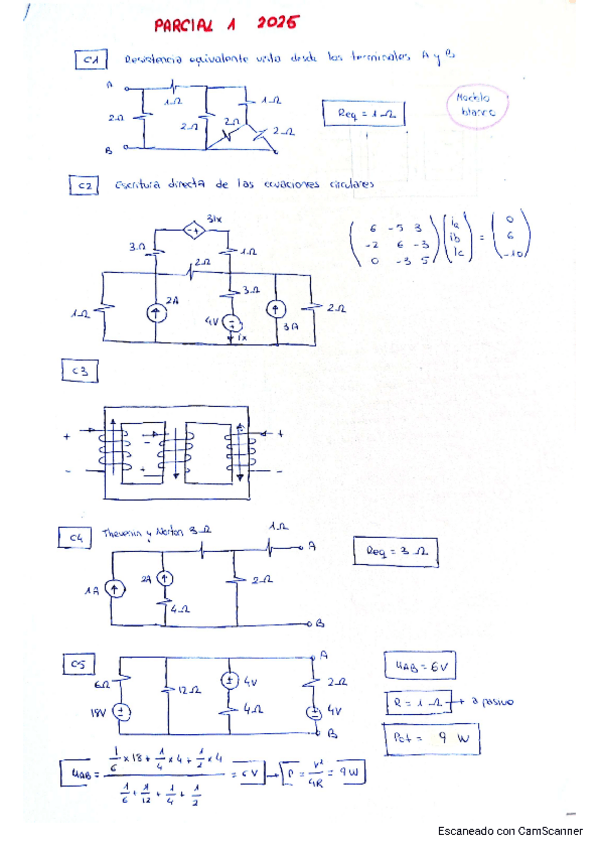 PARCIAL 1 2025
C1 Resistencia equivalente vista desde los terminales A y B
A
1Ω
1Ω
2Ω
2Ω
2Ω
2Ω
B
Req = 1Ω
Modelo
blanco
C2 Escritura directa de las ecuaciones circulares
3ix
3Ω
1Ω
2Ω
1Ω
2A
3Ω
4V
ix
3A
2Ω
6 -5 3
-2 6 -3
0 -3 5
ia
ib
ic
=
0
6
-10
C3
+ - +
- + -
C4 Thevenin y Norton 3Ω 1Ω
A
1A
2A
4Ω
2Ω
B
Req = 3Ω
C5
A
6Ω
12Ω
4V
2Ω
18V
4Ω
4V
B
UAB = 6V
R = 1Ω → a pasivo
Pot = 9 W
UAB = 1/6 x 18 + 1/4 x 4 + 1/2 x 4 / 1/6 + 1/12 + 1/4 + 1/2 = 6V → P = V²/4R = 9W
Escaneado con CamScanner